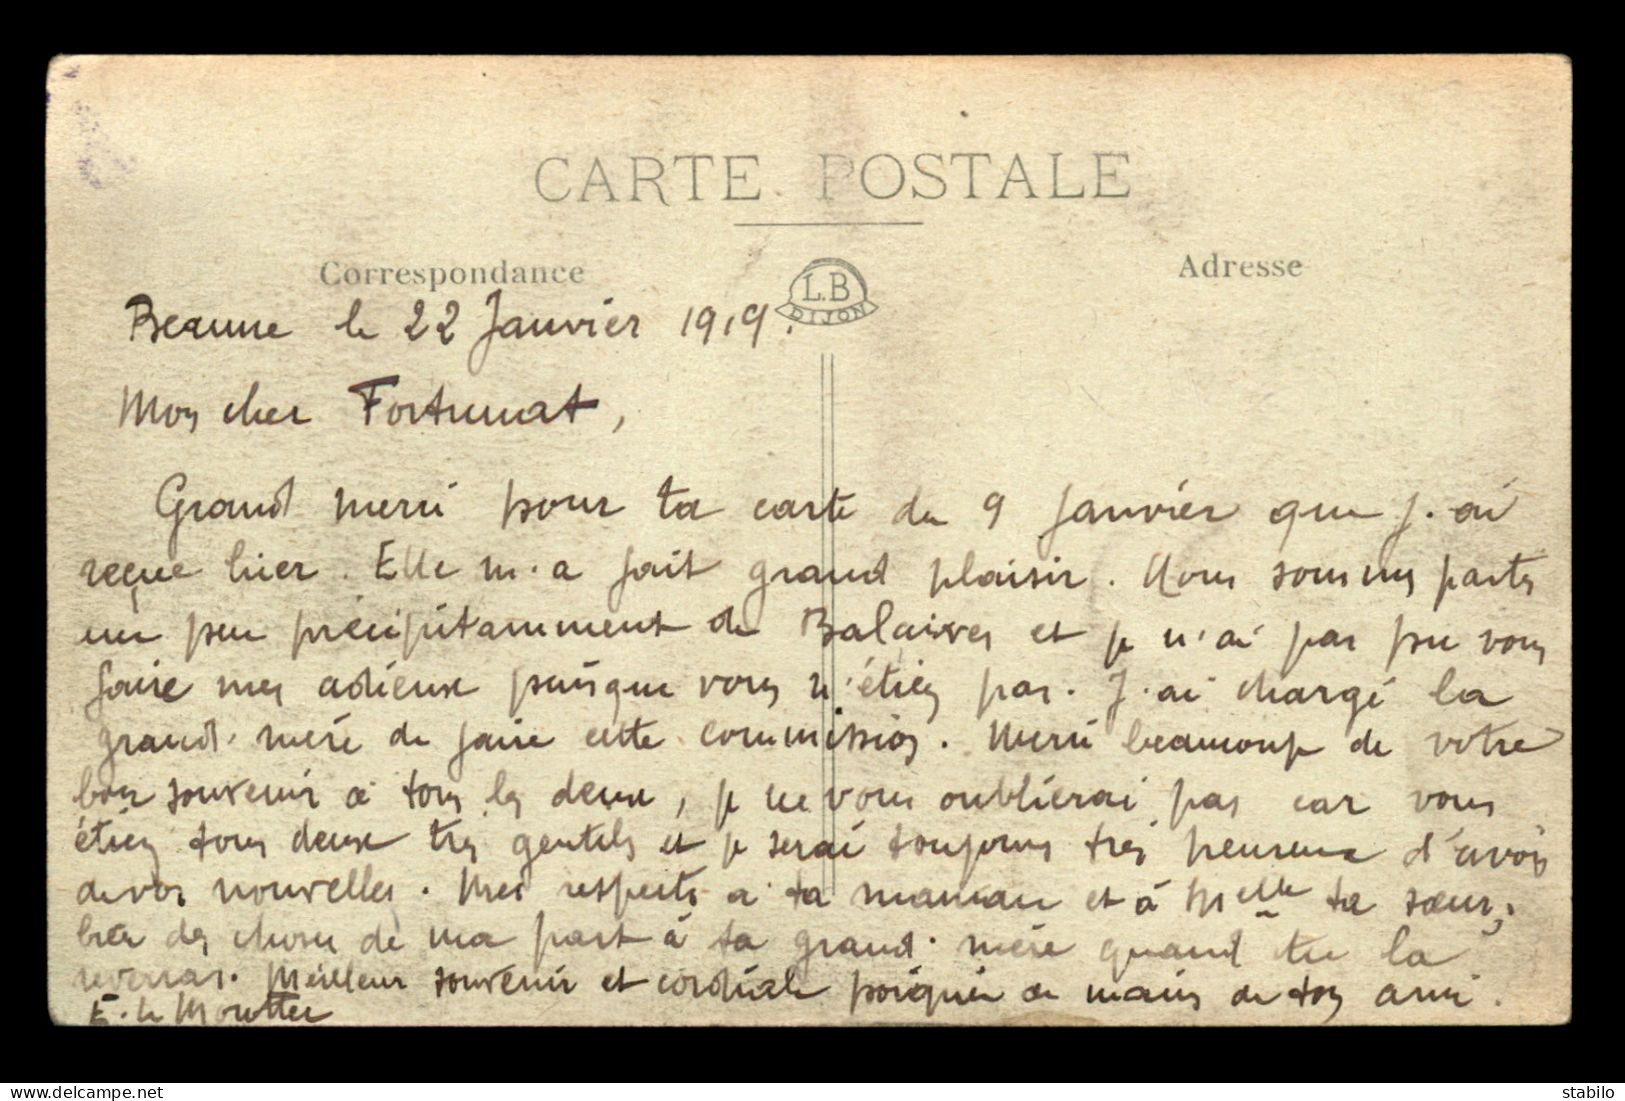 CARTE POSTALE
Correspondance
L.B
DIJON
Adresse
Beaune le 22 Janvier 1919.
Mon cher Fortunat,
Grand merci pour ta carte du 9 Janvier que j'ai
reçue hier. Elle m'a fait grand plaisir. Nous sommes partis
un peu précipitamment de Balaives et je n'ai pas pu vous
faire mes adieux puisque vous n'étiez pas. J'ai chargé la
grand'mère de faire cette commission. Merci beaucoup de votre
bon souvenir à tous les deux, je ne vous oublierai pas car vous
étiez tous deux très gentils et je serai toujours très heureux d'avoir
de vos nouvelles. Mes respects à ta maman et à Melle ta sœur;
bien des choses de ma part à ta grand'mère quand tu la
reverras. Meilleur souvenir et cordiale poignée de mains de ton ami.
E. le Moutter
delcampe.net
stabilo